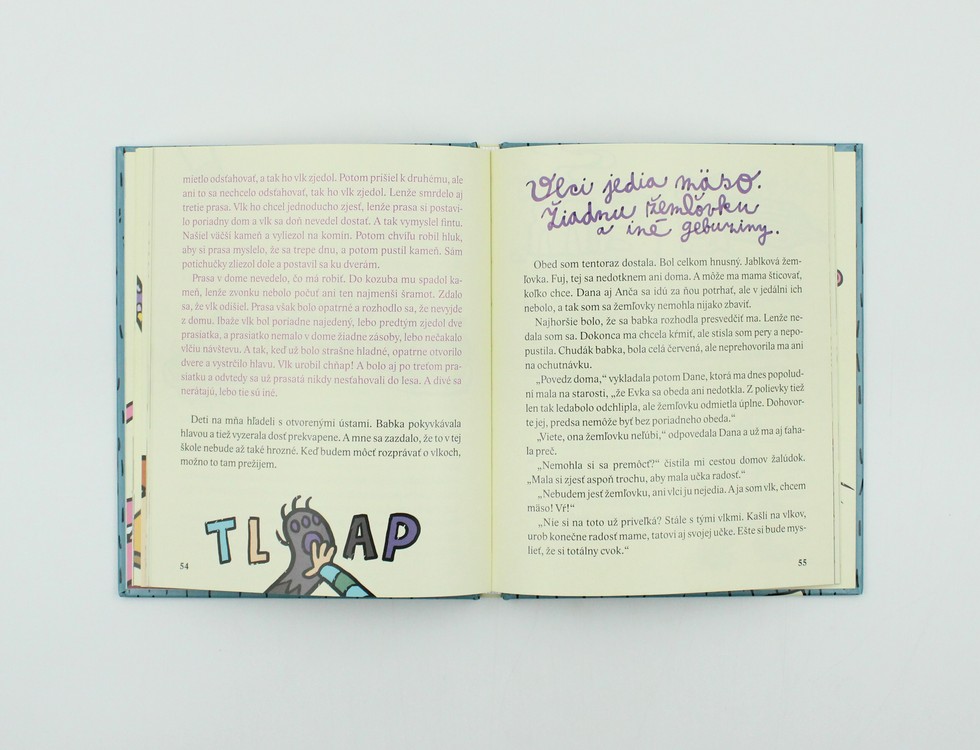 mietlo odsťahovať, a tak ho vlk zjedol. Potom prišiel k druhému, ale
ani to sa nechcelo odsťahovať, tak ho vlk zjedol. Lenže smrdelo aj
tretie prasa. Vlk ho chcel jednoducho zjesť, lenže prasa si postavi-
lo poriadny dom a vlk sa doň nevedel dostať. A tak vymyslel fintu.
Našiel väčší kameň a vyliezol na komín. Potom chvíľu robil hluk,
aby si prasa myslelo, že sa trepe dnu, a potom pustil kameň. Sám
potichučky zliezol dole a postavil sa ku dverám.
Prasa v dome nevedelo, čo má robiť. Do kozuba mu spadol ka-
meň, lenže zvonku nebolo počuť ani ten najmenší šramot. Zdalo
sa, že vlk odišiel. Prasa však bolo opatrné a rozhodlo sa, že nevyjde
z domu. Ibaže vlk bol poriadne najedený, lebo predtým zjedol dve
prasiatka, a prasiatko nemalo v dome žiadne zásoby, lebo nečakalo
vlčiu návštevu. A tak, keď už bolo strašne hladné, opatrne otvorilo
dvere a vystrčilo hlavu. Vlk urobil chňap! A bolo aj po treťom pra-
siatku a odvtedy sa už prasatá nikdy nesťahovali do lesa. A divé sa
nerátajú, lebo tie sú iné.
Deti na mňa hľadeli s otvorenými ústami. Babka pokyvkávala
hlavou a tiež vyzerala dosť prekvapene. A mne sa zazdalo, že to v tej
škole nebude až také hrozné. Keď budem môcť rozprávať o vlkoch,
možno to tam prežijem.
TL AP
54
Vlci jedia mäso.
Žiadnu žemľovku
a iné gebuziny.
Obed som tentoraz dostala. Bol celkom hnusný. Jablková žem-
ľovka. Fuj, tej sa nedotknem ani doma. A môže ma mama šticovať,
koľko chce. Dana aj Anča sa idú za ňou potrhať, ale v jedálni ich
nebolo, a tak som sa žemľovky nemohla nijako zbaviť.
Najhoršie bolo, že sa babka rozhodla presvedčiť ma. Lenže ne-
dala som sa. Dokonca ma chcela kŕmiť, ale stisla som pery a nepo-
pustila. Chudák babka, bola celá červená, ale neprehovorila ma ani
na ochutnávku.
„Povedz doma,“ vykladala potom Dane, ktorá ma dnes popolud-
ní mala na starosti, „že Evka sa obeda ani nedotkla. Z polievky tiež
len tak ledabolo odchlipla, ale žemľovku odmietla úplne. Dohovor-
te jej, predsa nemôže byť bez poriadneho obeda.“
„Viete, ona žemľovku neľúbi,“ odpovedala Dana a už ma aj ťaha-
la preč.
„Nemohla si sa premôcť?“ čistila mi cestou domov žalúdok.
„Mala si zjesť aspoň trochu, aby mala učka radosť.“
„Nebudem jesť žemľovku, ani vlci ju nejedia. A ja som vlk, chcem
mäso! Vŕ!“
„Nie si na toto už priveľká? Stále s tými vlkmi. Kašli na vlkov,
urob konečne radosť mame, tatovi aj svojej učke. Ešte si bude mys-
lieť, že si totálny cvok.“
55